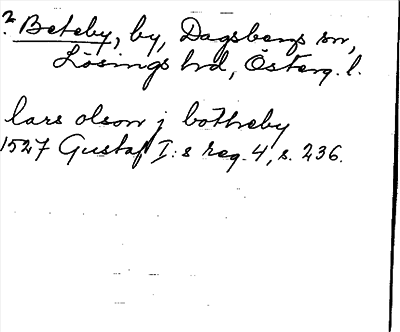 ? Beteby, by, Dagsbergs sn,
Lösings hrd, Österg. l.
lars olson j bothreby
1527 Gustaf I:s reg. 4, s. 236.